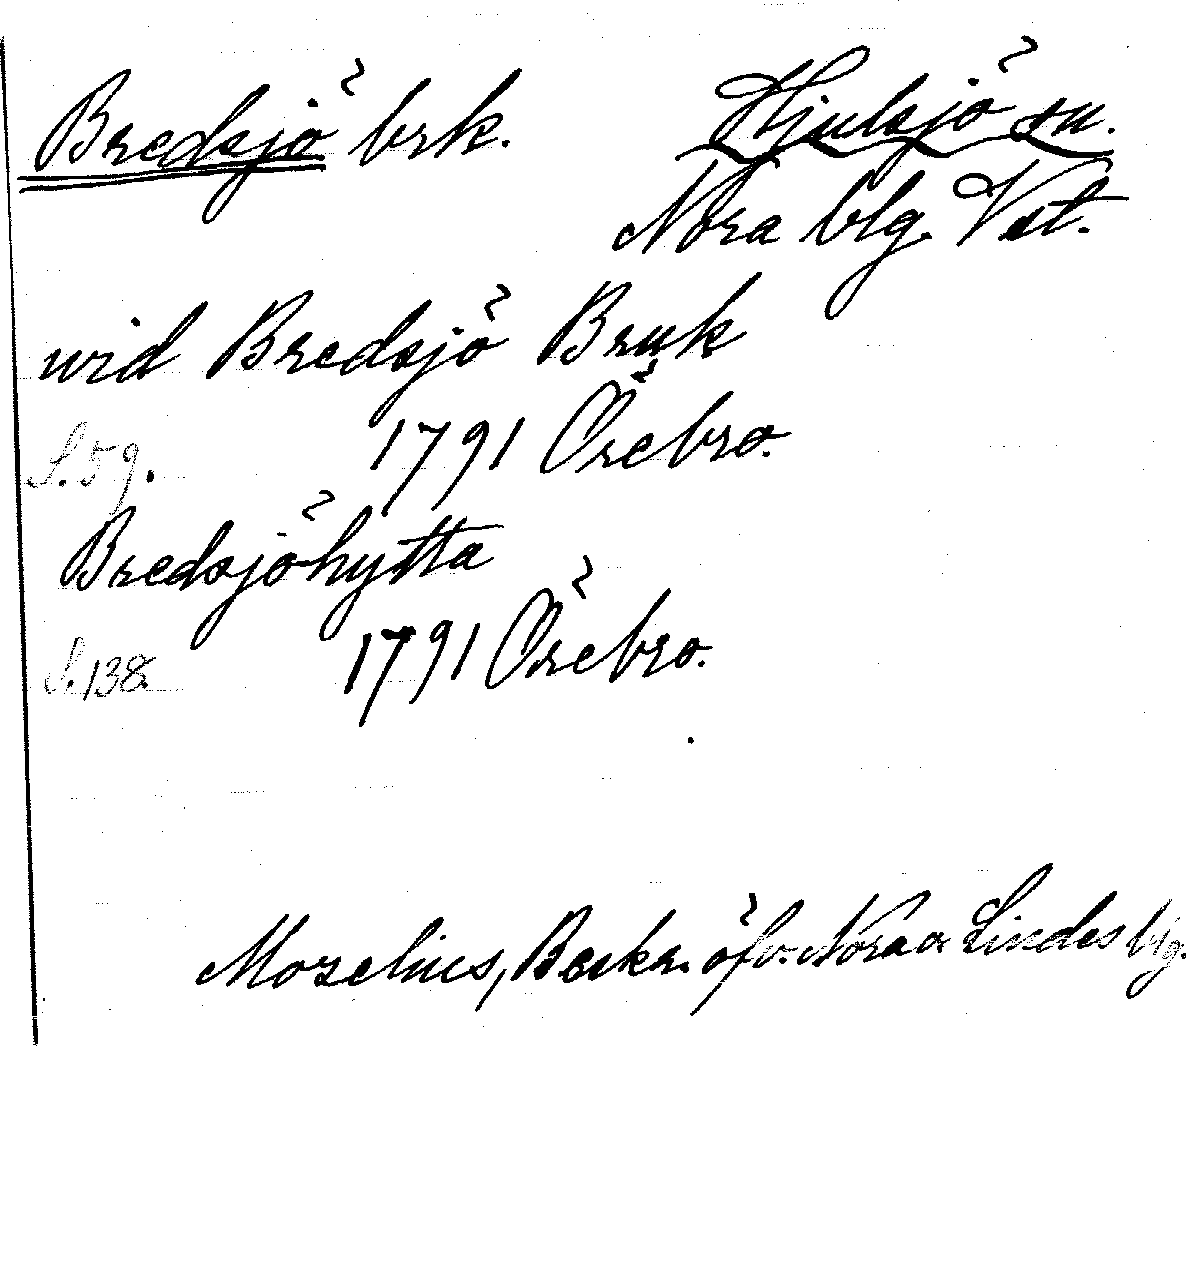 Bredsjö brk.
Hjulsjö sn.
Nora blg. Vstl.
wid Bredsjö Bruk
S. 59. 1791 Örebro.
Bredsjöhytta
S. 138. 1791 Örebro.
Mozelius, Beskr. öfv. Nora o. Lindes blg.